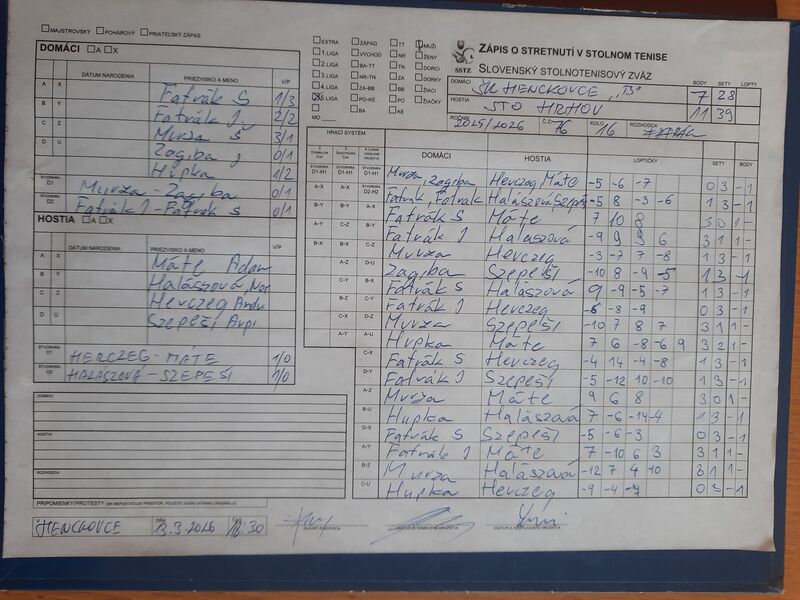 MAJSTROVSKÝ POHÁROVÝ PRIATEĽSKÝ ZÁPAS
DOMÁCI A X
DÁTUM NARODENIA PRIEZVISKO A MENO V/P
A X Fatrák S 1/3
B Y Fatrák J. 2/2
C Z Murza Š 3/1
D U Zagiba J 0/1
Hupka 1/2
ŠTVORHRA D1 Murza - Zagiba 0/1
ŠTVORHRA D2 Fatrák J - Fatrák S 0/1
HOSTIA A X
DÁTUM NARODENIA PRIEZVISKO A MENO V/P
A X Máte Adam
B Y Halászová
C Z Herczeg
D U Szepeši Arpi
ŠTVORHRA D1 HERCZEG - MÁTE 1/0
ŠTVORHRA HALÁSZOVÁ - SZEPEŠI 1/0
DOMÁCI
HOSTIA
ROZHODCA
PRIPOMIENKY/PROTESTY
HENCKOVCE 13.3.2026 18:30
EXTRA ZÁPAD TT MUŽI
1. LIGA VÝCHOD NR ŽENY
2. LIGA BA-TT TN DORCI
3. LIGA NR-TN ZA DORKY
4. LIGA ZA-BB BB ŽIACI
5. LIGA PO-KE PO ŽIAČKY
MO BA KE
SSTZ
ZÁPIS O STRETNUTÍ V STOLNOM TENISE
SLOVENSKÝ STOLNOTENISOVÝ ZVÄZ
BODY SETY LOPTY
DOMÁCI ŠK HENCKOVCE "B" 7 28
HOSTIA STO HRHOV 11 39
ROČNÍK 2025/2026 Č.Z 76 KOLO 16 ROZHODCA
HRACÍ SYSTÉM
DOMÁCI HOSTIA LOPTIČKY SETY BODY
D1-H1 D1-H1 D1-H1 Murza, Zagiba Herczeg, Máte -5 -6 -7 0 3 - 1
A-X A-X D2-H2 Fatrák, Fatrák Halászová Szepeši -5 8 -3 -6 1 3 - 1
B-Y B-Y A-X Fatrák S Máte 7 10 8 3 0 1 -
A-Y C-Z B-Y Fatrák J Halászová -9 9 9 6 3 1 1 -
B-X B-X C-Z Murza Herczeg -3 -7 7 -8 1 3 - 1
A-Z D-U Zagiba Szepeši -10 8 -9 -5 1 3 - 1
C-Y B-X Fatrák S Halászová 9 -9 -5 -7 1 3 - 1
B-Z C-Y Fatrák J Herczeg -6 -8 -9 0 3 - 1
C-X D-Z Murza Szepeši -10 7 8 7 3 1 1 -
A-Y A-U Hupka Máte 7 6 -8 -6 9 3 2 1 -
C-X Fatrák S Herczeg -4 14 -4 -8 1 3 - 1
D-Y Fatrák J Szepeši -5 -12 10 -10 1 3 - 1
A-Z Murza Máte 9 6 8 3 0 1 -
B-U Hupka Halászová 7 -6 -14 -4 1 3 - 1
D-X Fatrák S Szepeši -5 -6 -3 0 3 - 1
A-Y Fatrák J Máte 7 -10 6 3 3 1 1 -
B-Z Murza Halászová -12 7 4 10 3 1 1 -
C-U Hupka Herczeg -9 -4 -9 0 3 - 1